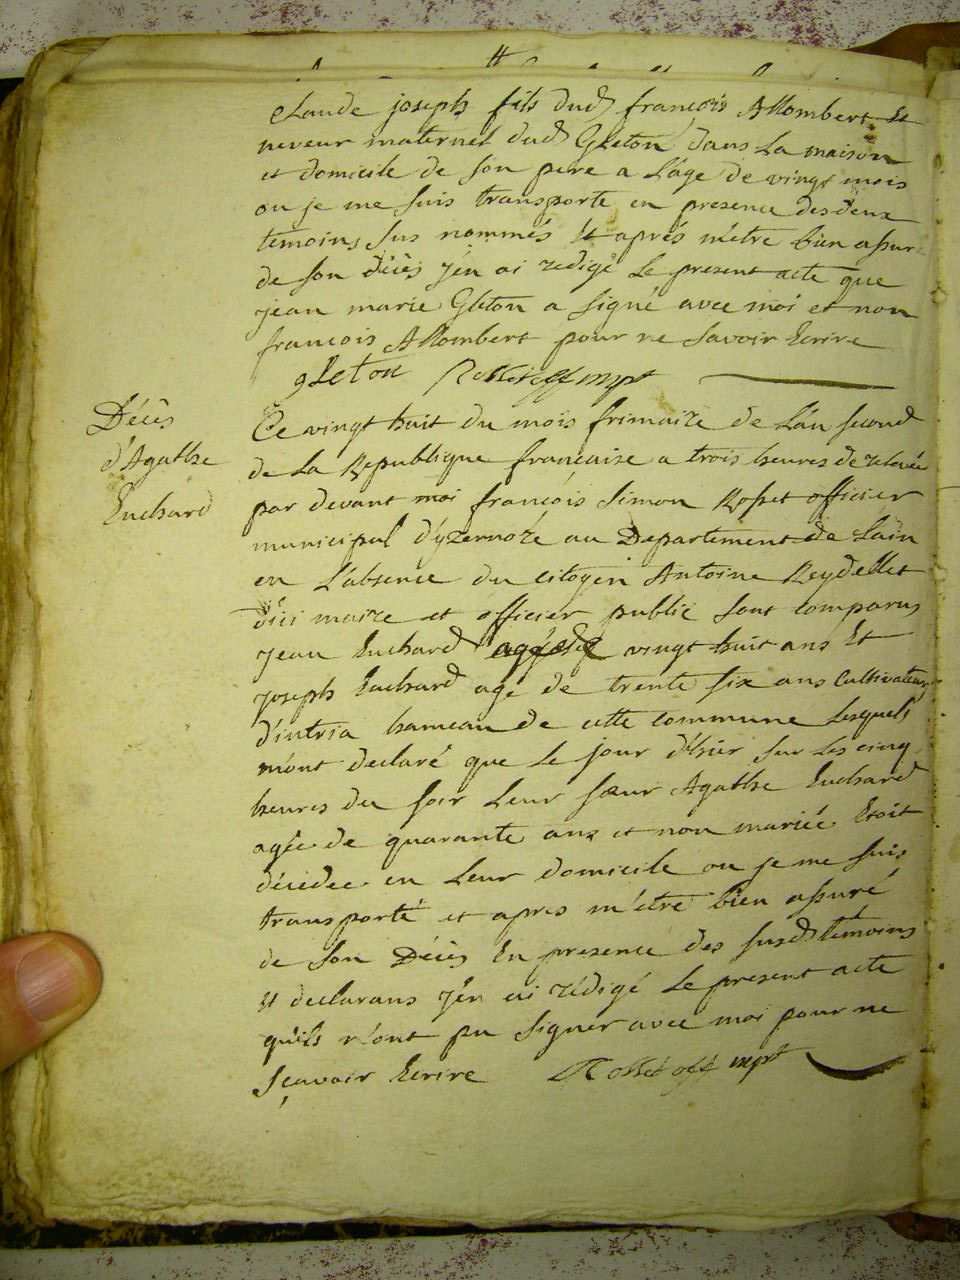 Claude joseph fils dud françois Allombert et
neveur maternel dud Gleton dans La maison
et domicile de son pere a L'age de vingt mois
ou je me suis transporte en presence des deux
temoins sus nommés et aprés m'etre bien assuré
de son décès j'en ai redigé Le present acte que
jean marie Gleton a signé avec moi et non
françois Allombert pour ne savoir Ecrire
gleton Rosset off mpt
Décès
d'Agathe
Euchard
Ce vingt huit du mois frimaire de L'an second
de La Republique françaîse a trois heures de relevée
par devant moi françois Simon Rosset officier
municipal d'yzernore au Departement de L'ain
en L'absence du citoyen Antoine Reydellet
d'ici maire et officier public sont comparus
jean Euchard agé de vingt huit ans Et
joseph Euchard agé de trente six ans Cultivateurs
d'intria hameau de cette commune Lesquels
m'ont declaré que Le jour d'hier sur Les cinq
heures du soir Leur sœur Agathe Euchard
agée de quarante ans et non mariée Etoit
décédée en Leur domicile ou je me suis
transporté et apres m'etre bien assuré
de son Décès En presence des susd témoins
Et declarans j'en ai rédigé Le present acte
qu'ils n'ont pu signer avec moi pour ne
sçavoir Ecrire Rosset off mpt